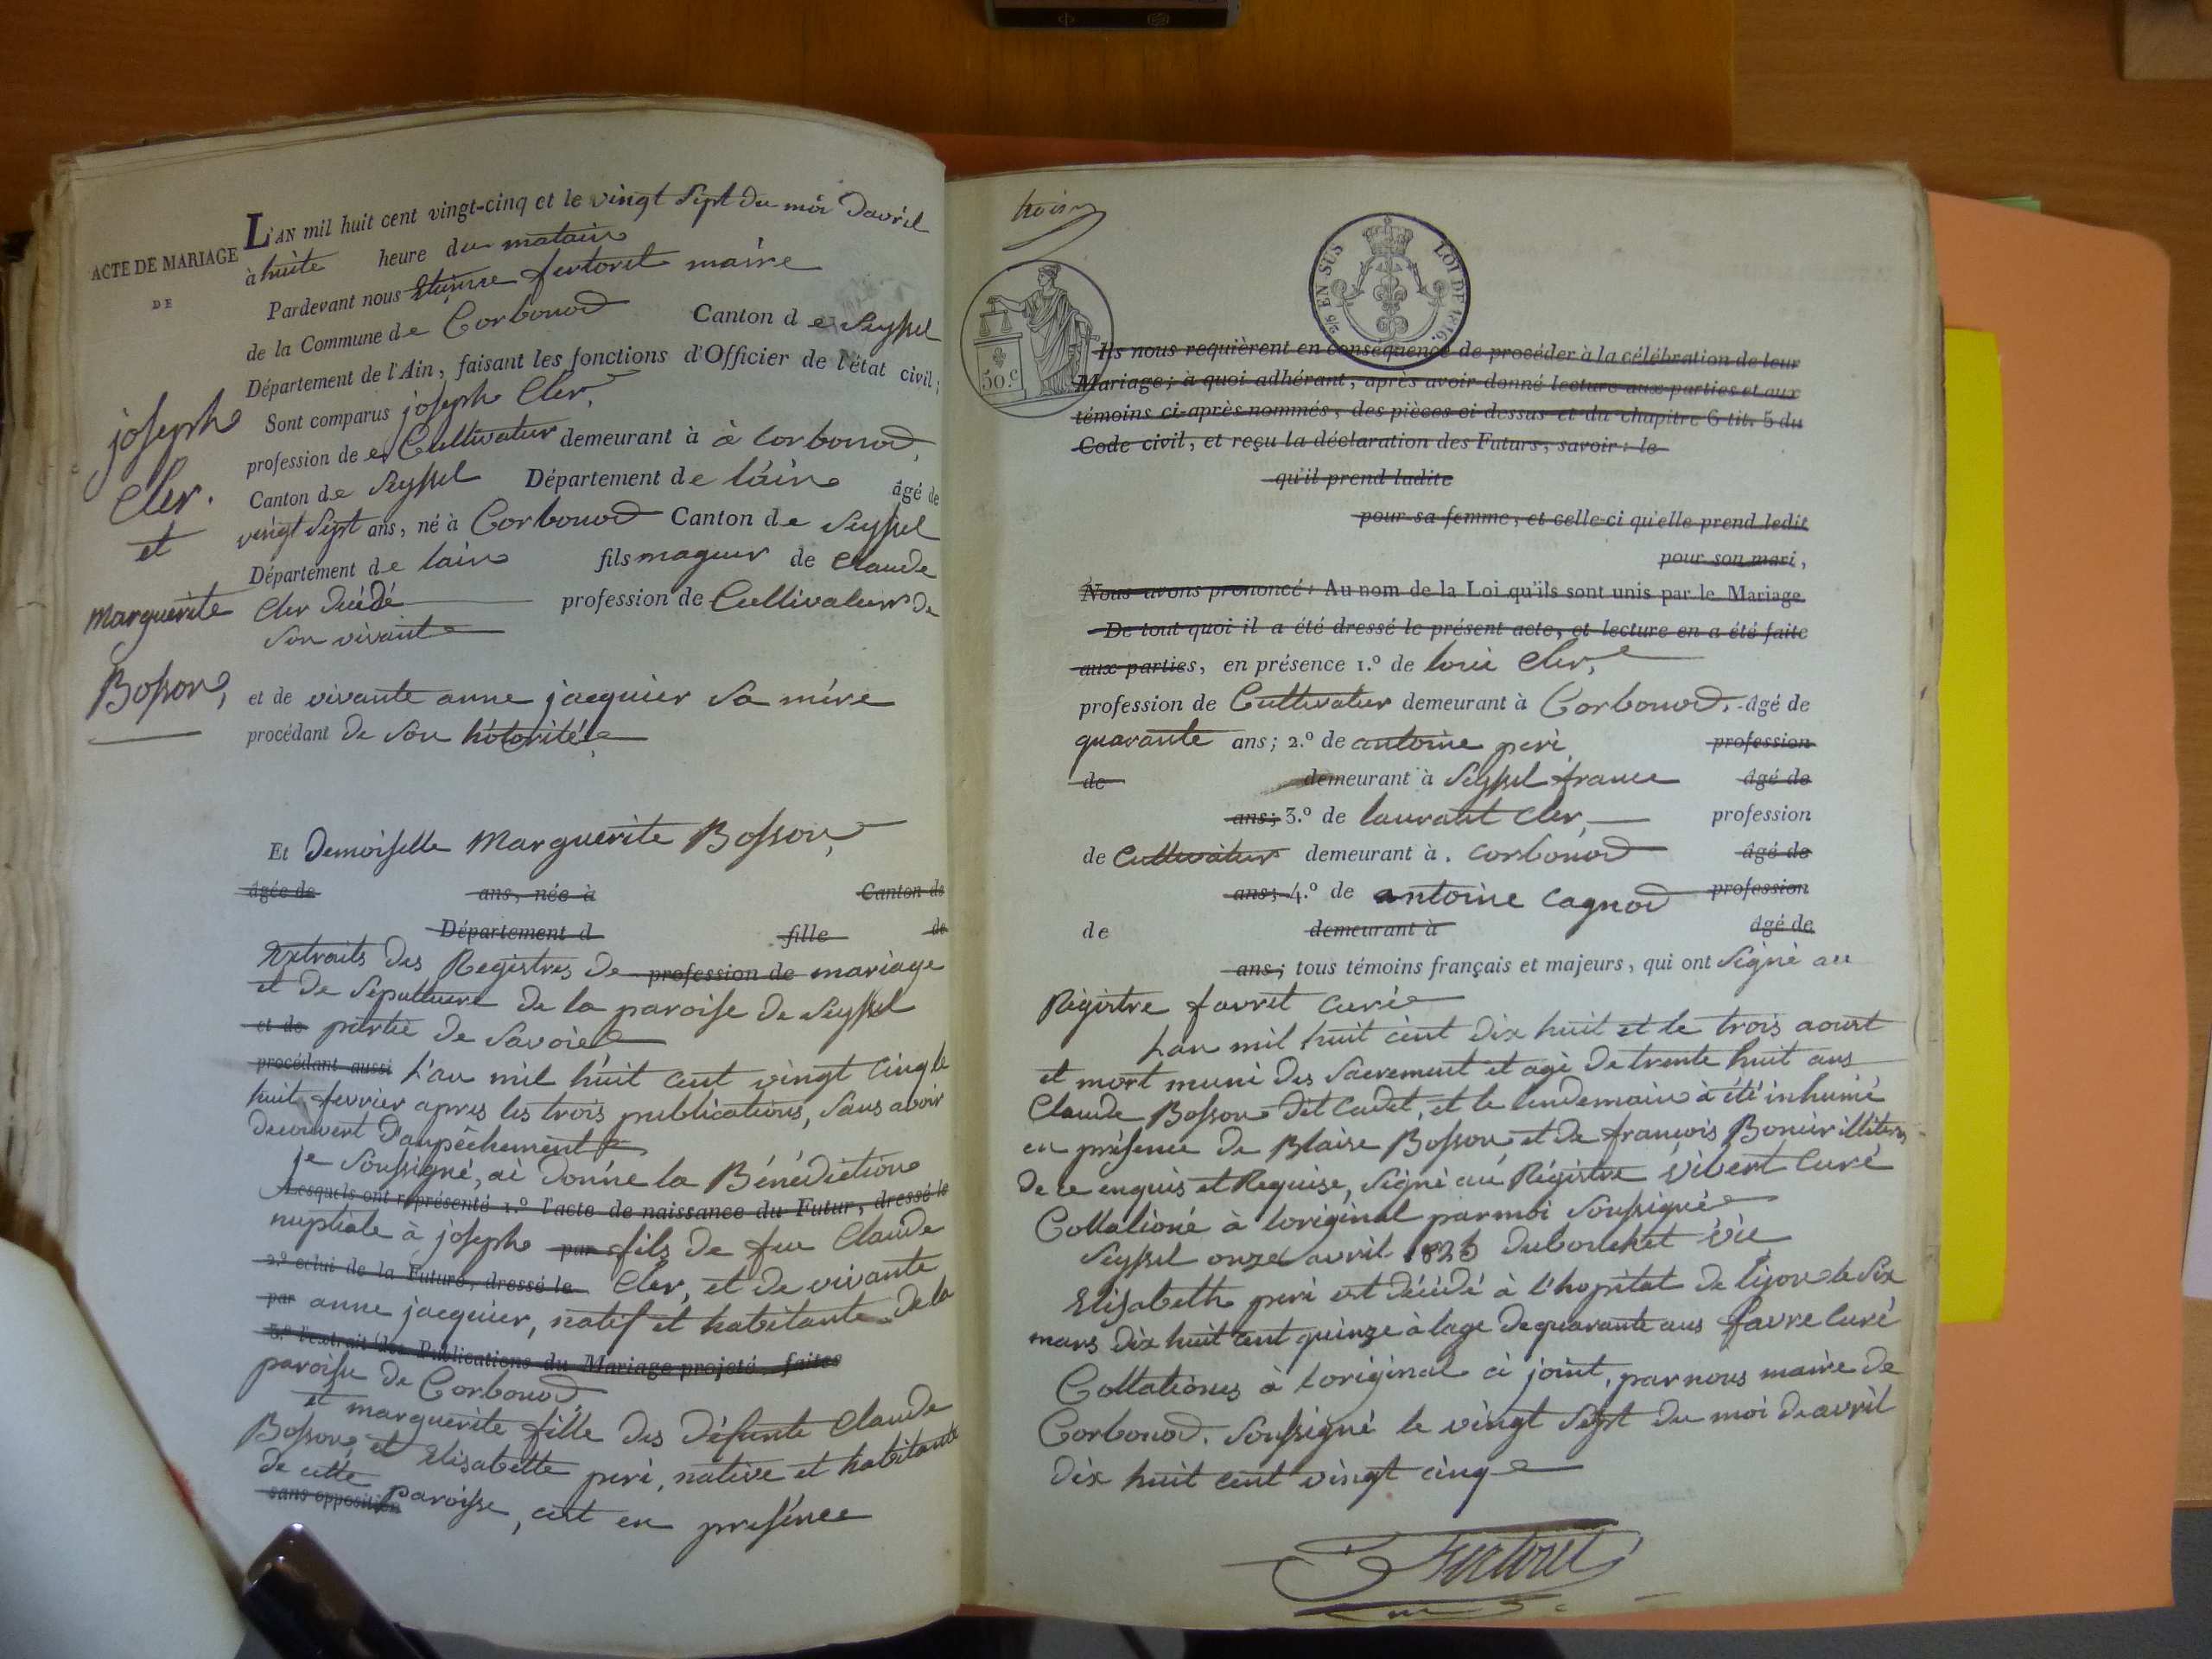 ACTE DE MARIAGE
DE
joseph
Cler.
et
Marguerite
Bosson,
L'AN mil huit cent vingt-cinq et le vingt sept du moi davril
à huite heure du matain
Pardevant nous Etienne fertoret maire
de la Commune de Corbonod Canton de Seyssel
Département de l'Ain, faisant les fonctions d'Officier de l'état civil;
Sont comparus joseph Cler,
profession de Cultivatur demeurant à à Corbonod,
Canton de Seyssel Département de láin âgé de
vingt sept ans, né à Corbonod Canton de Seyssel
Département de lain fils mageur de Claude
Cler décédé profession de Cultivateur de
son vivant
et de vivante anne jacquier sa mére
procédant de son hótorité,
Et Demoiselle Marguerite Bosson,
âgée de ans, née à Canton de
Département d fille de
Extraits des Registres de profession de mariage
et de sepulture de la paroisse de Seyssel
et de partie de Savoie
procédant aussi L'an mil huit cent vingt cinq le
huit fevrier apres les trois publications, sans avoir
decouvert d'aupêchement
je soussigné, ai donné la Bénédiction
Lesquels ont représenté 1.º l'acte de naissance du Futur, dressé le
nuptiale à joseph par fils de feu Claude
2.º celui de la Future, dressé le Cler, et de vivante
par anne jacquier, natif et habitante de la
3.º l'extrait des Publications du Mariage projeté faites
paroisse de Corbonod
et marguerite fille des défunte Claude
Bosson, et Elisabette peri, native et habitante
de cette paroisse, cest en présence
sans opposition
trois
2/5 EN SUS LOI DE 1816.
50.c
Ils nous requièrent en conséquence de procéder à la célébration de leur
Mariage; à quoi adhérant, après avoir donné lecture aux parties et aux
témoins ci-après nommés, des pièces ci dessus et du chapitre 6 tit. 5 du
Code civil, et reçu la déclaration des Futurs, savoir: le
qu'il prend ladite
pour sa femme, et celle-ci qu'elle prend ledit
pour son mari,
Nous avons prononcé: Au nom de la Loi qu'ils sont unis par le Mariage
De tout quoi il a été dressé le présent acte, et lecture en a été faite
aux parties, en présence 1.º de loui Cler,
profession de Cultivatur demeurant à Corbonod. âgé de
quarante ans; 2.º de antoine peri profession
de demeurant à Seyssel france âgé de
ans; 3.º de laurant Cler, profession
de Cultivatur demeurant à. Corbonod âgé de
ans; 4.º de antoine Cagnod profession
de demeurant à âgé de
ans; tous témoins français et majeurs, qui ont signé au
Régistre favret Curé
L'an mil huit cent dix huit et le trois aoust
et mort muni des Sacrement et agé de trente huit ans
Claude Bosson dit Cadet, et le lendemain à été inhumé
en présence de Blaise Bosson et de francois illiters
de ce enquis et Requise, signé au Régistre Vibert Curé
Collationé à loriginal par moi Soussigné
Seyssel onze avril 1825 dubouchet vic
Elisabeth peri est décédé à l'hopital de lijon le six
mars dix huit cent quinze à lage de quarante ans favre Curé
Collationés à loriginal ci joint, par nous maire de
Corbonod. Soussigné le vingt sept du moi de avril
dix huit cent vingt cinq
Fertoret